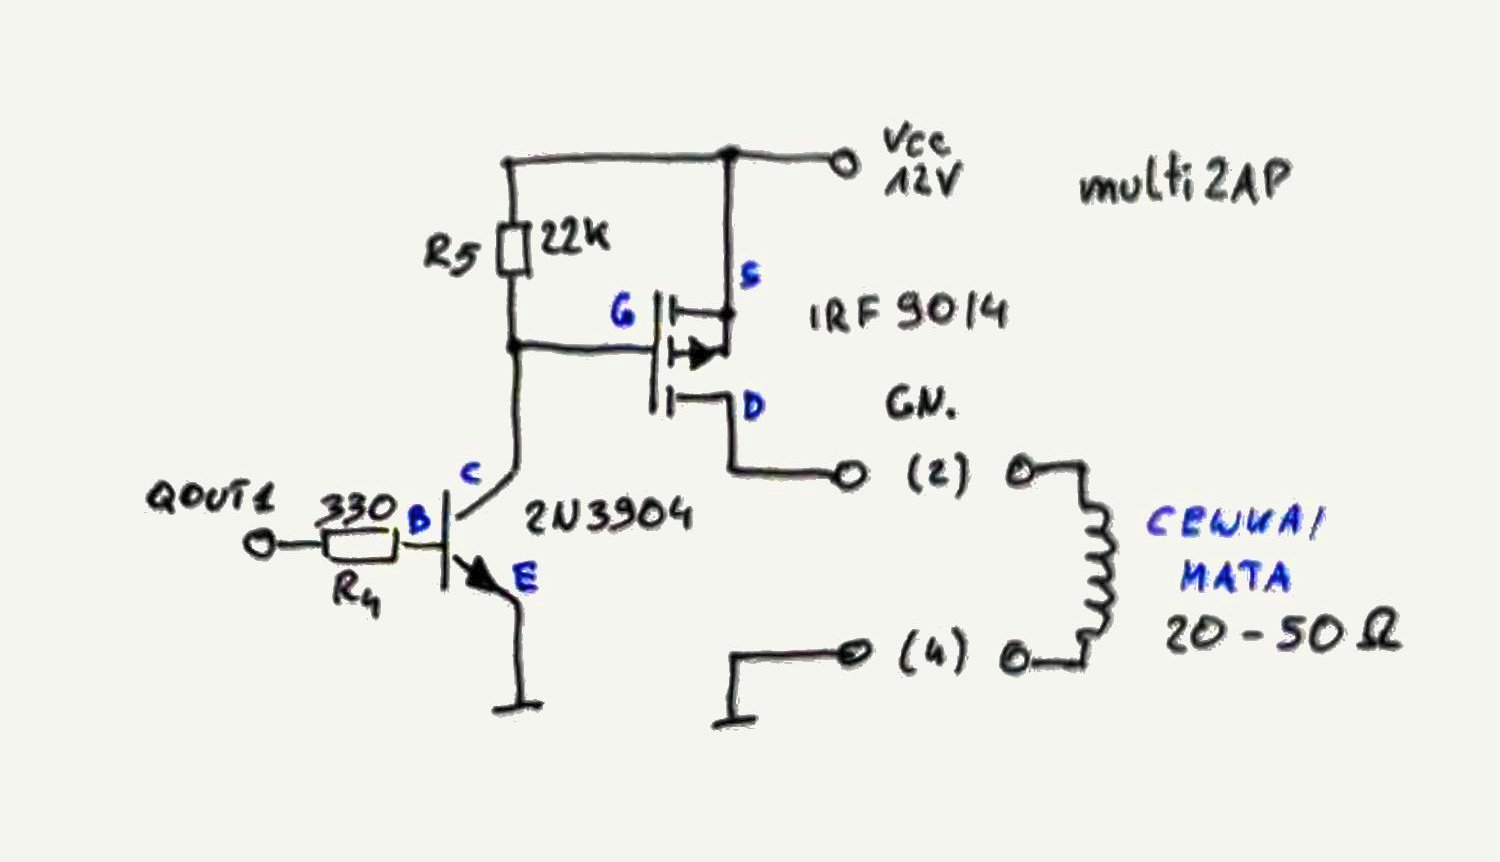 Vcc
12V
multi2AP
R5
22K
S
G
IRF 9014
D
GN.
(2)
C
QOUT1
330
B
2N3904
CEWKA/
MATA
E
R4
20-50Ω
(4)